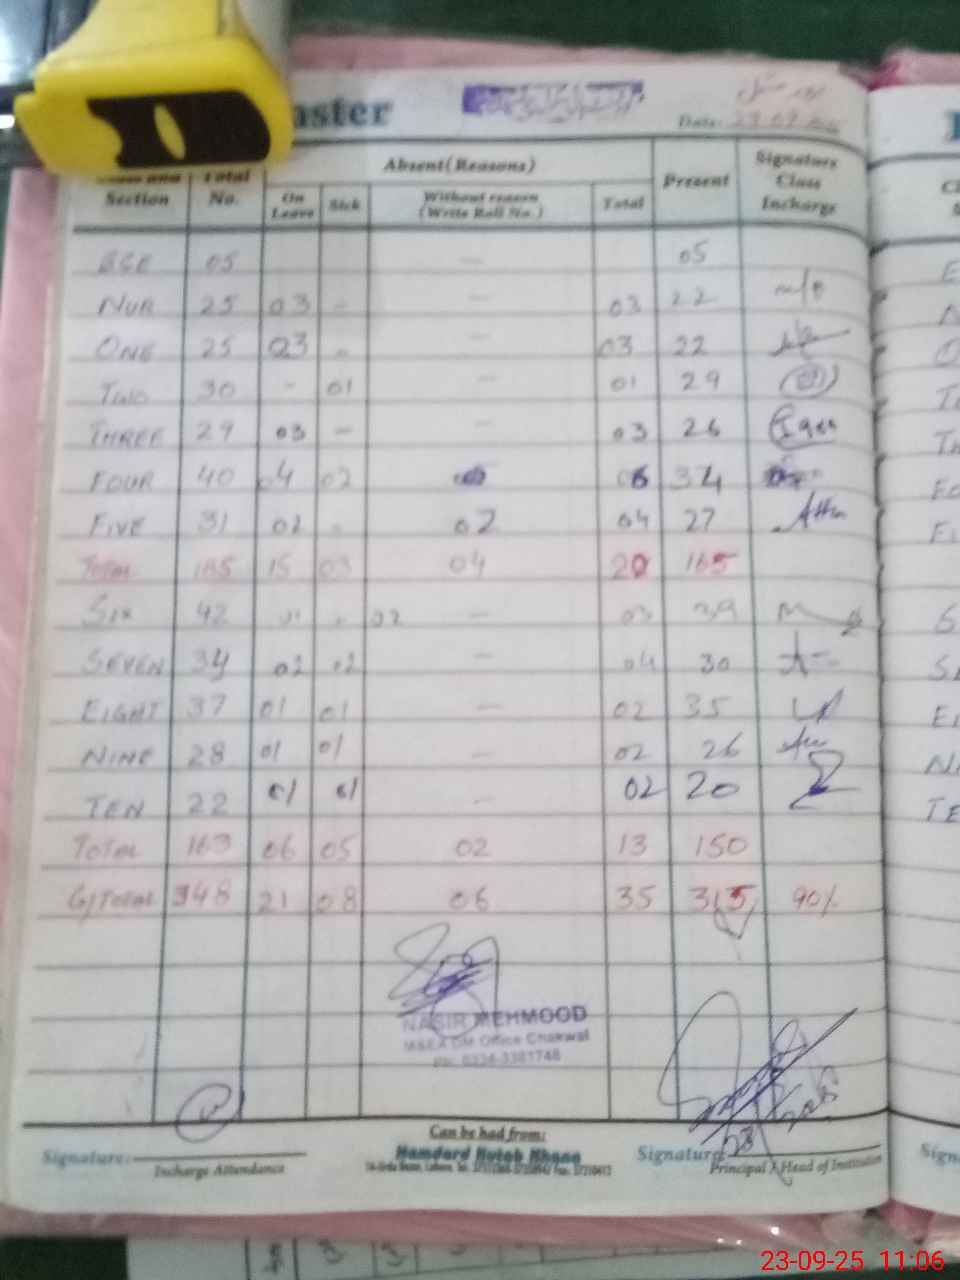 aster
Date:
Absent(Reasons)
Section Total No. On Leave Sick Without reason (Write Roll No.) Total Present Signature Class Incharge
05 — 05
NUR 25 03 - — 03 22
ONE 25 03 - — 03 22
TWO 30 - 01 — 01 29
THREE 29 03 — — 03 26
FOUR 40 04 02 06 34
FIVE 31 02 . 02 04 27
TOTAL 15 03 04 20 165
SIX 42 01 . 02 — 03 39
SEVEN 34 02 02 — 04 30
EIGHT 37 01 01 — 02 35
NINE 28 01 01 — 02 26
TEN 22 01 01 — 02 20
TOTAL 163 06 05 02 13 150
G/TOTAL 348 21 08 06 35 315 90%
NASIR MEHMOOD
M&EA DM Office Chakwal
Can be had from:
Hamdard Kutob Khana
Signature: Signature:
Incharge Attendance Principal / Head of Institution
23-09-25 11:06